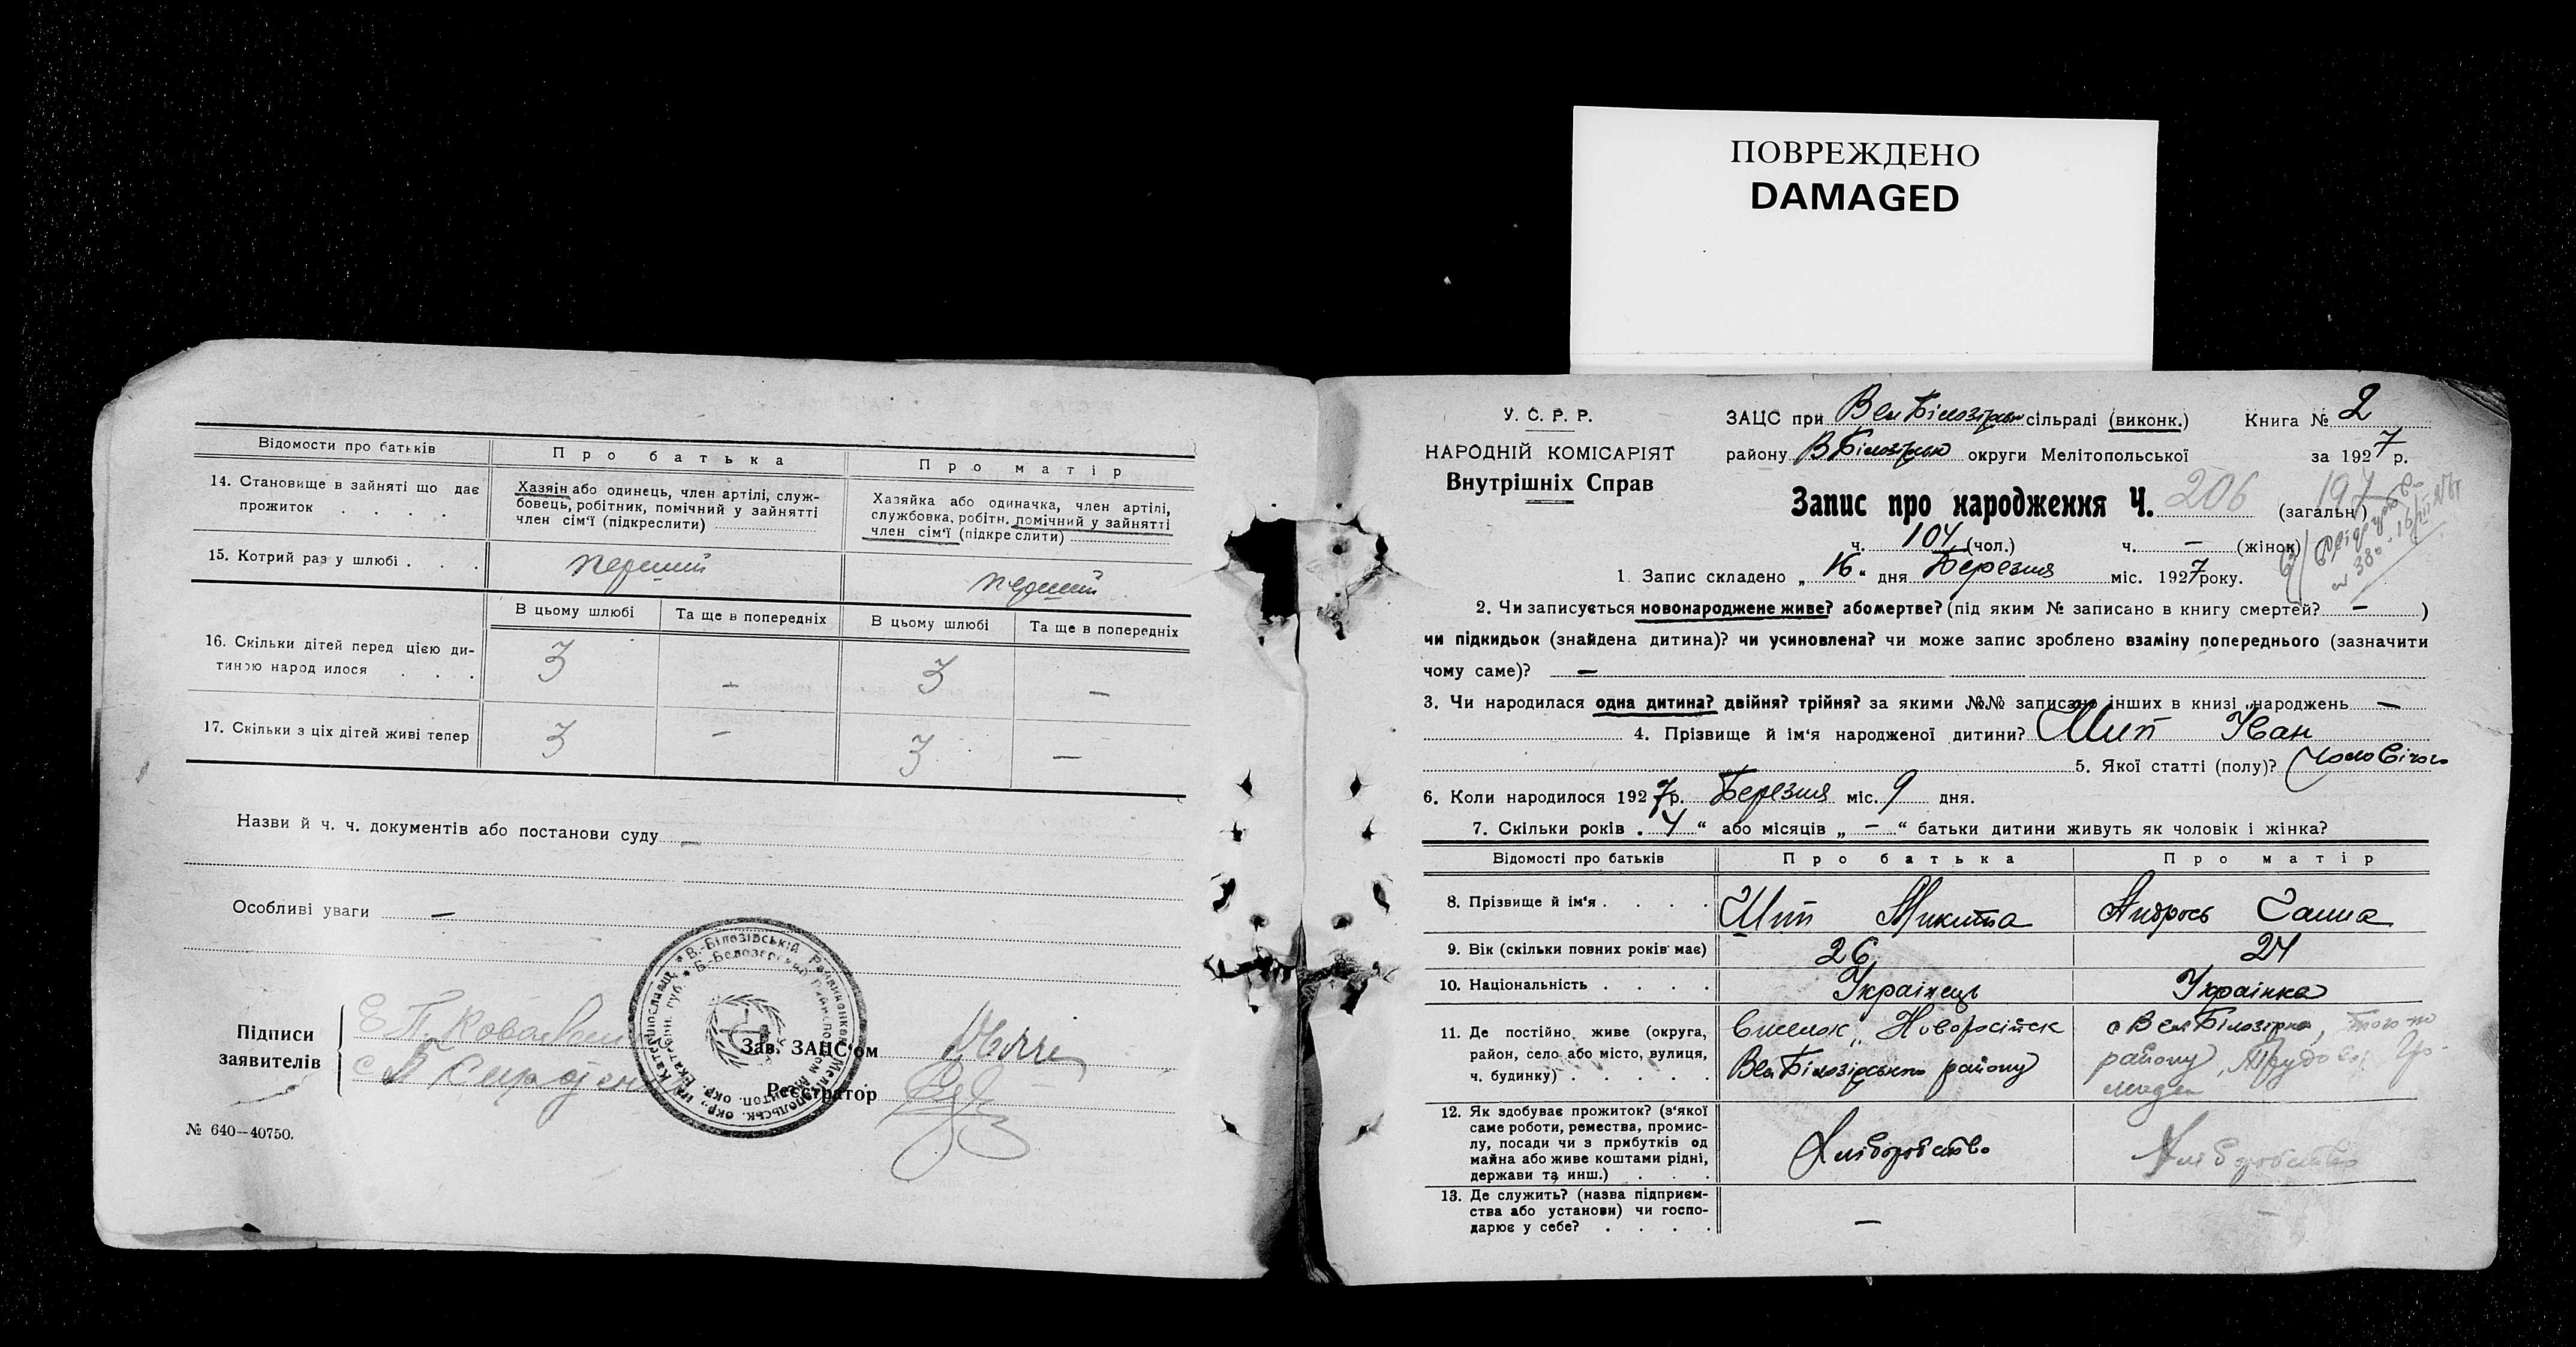 ПОВРЕЖДЕНО
DAMAGED
Відомости про батьків
Про батька
Про матір
14. Становище в зайняті що дає
прожиток . . . .
Хазяїн або одинець, член артілі, служ-
бовець, робітник, помічний у зайнятті
член сім'ї (підкреслити)
Хазяйка або одиначка, член артілі,
службовка, робітн. помічний у зайнятті
член сім'ї (підкреслити)
15. Котрий раз у шлюбі . . .
перший
перший
В цьому шлюбі
Та ще в попередніх
В цьому шлюбі
Та ще в попередніх
16. Скільки дітей перед цією ди-
тиною народ илося . . .
3 – 3 –
17. Скільки з ціх дітей живі тепер
3 – 3 –
Назви й ч. ч. документів або постанови суду –
Особливі уваги –
Підписи
заявителів
Зав. ЗАЦС'ом
Реєстратор
№ 640—40750.
У. С. Р. Р.
НАРОДНІЙ КОМІСАРІЯТ
Внутрішніх Справ
ЗАЦС при Вел Білозірськ сільраді (виконк.) Книга № 2
району В Білозірськ округи Мелітопольської за 1927 р.
Запис про народження Ч. 206 197 (загальн)
ч. 104 (чол.) ч. – (жінок)
1. Запис складено „ 16 “ дня Березня міс. 1927 року.
2. Чи записується новонароджене живе? або мертве? (під яким № записано в книгу смертей? – )
чи підкидьок (знайдена дитина)? чи усиновлена? чи може запис зроблено взаміну попереднього (зазначити
чому саме)? –
3. Чи народилася одна дитина? двійня? трійня? за якими №№ записано інших в книзі народжень –
4. Прізвище й ім'я народженої дитини? Шип Іван
5. Якої статті (полу)? Чоловічого
6. Коли народилося 1927 р. Березня міс. 9 дня.
7. Скільки років „ 4 “ або місяців „ – “ батьки дитини живуть як чоловік і жінка?
Відомості про батьків
Про батька
Про матір
8. Прізвище й ім'я . . . .
Шип Микита
Андрось Ганна
9. Вік (скільки повних років має)
26
24
10. Національність . . . .
Українець
Українка
11. Де постійно живе (округа,
район, село або місто, вулиця,
ч. будинку) . . . . .
Виселок „ Новоросійск
Вел Білозірського району
с Вел Білозірка, того по
району,
12. Як здобуває прожиток? (з'якої
саме роботи, ремества, промис-
лу, посади чи з прибутків од
майна або живе коштами рідні,
держави та инш.) . . .
Хліборобство
Хліборобство
13. Де служить? (назва підприєм-
ства або установи) чи госпо-
дарює у себе? . . . .
–
–